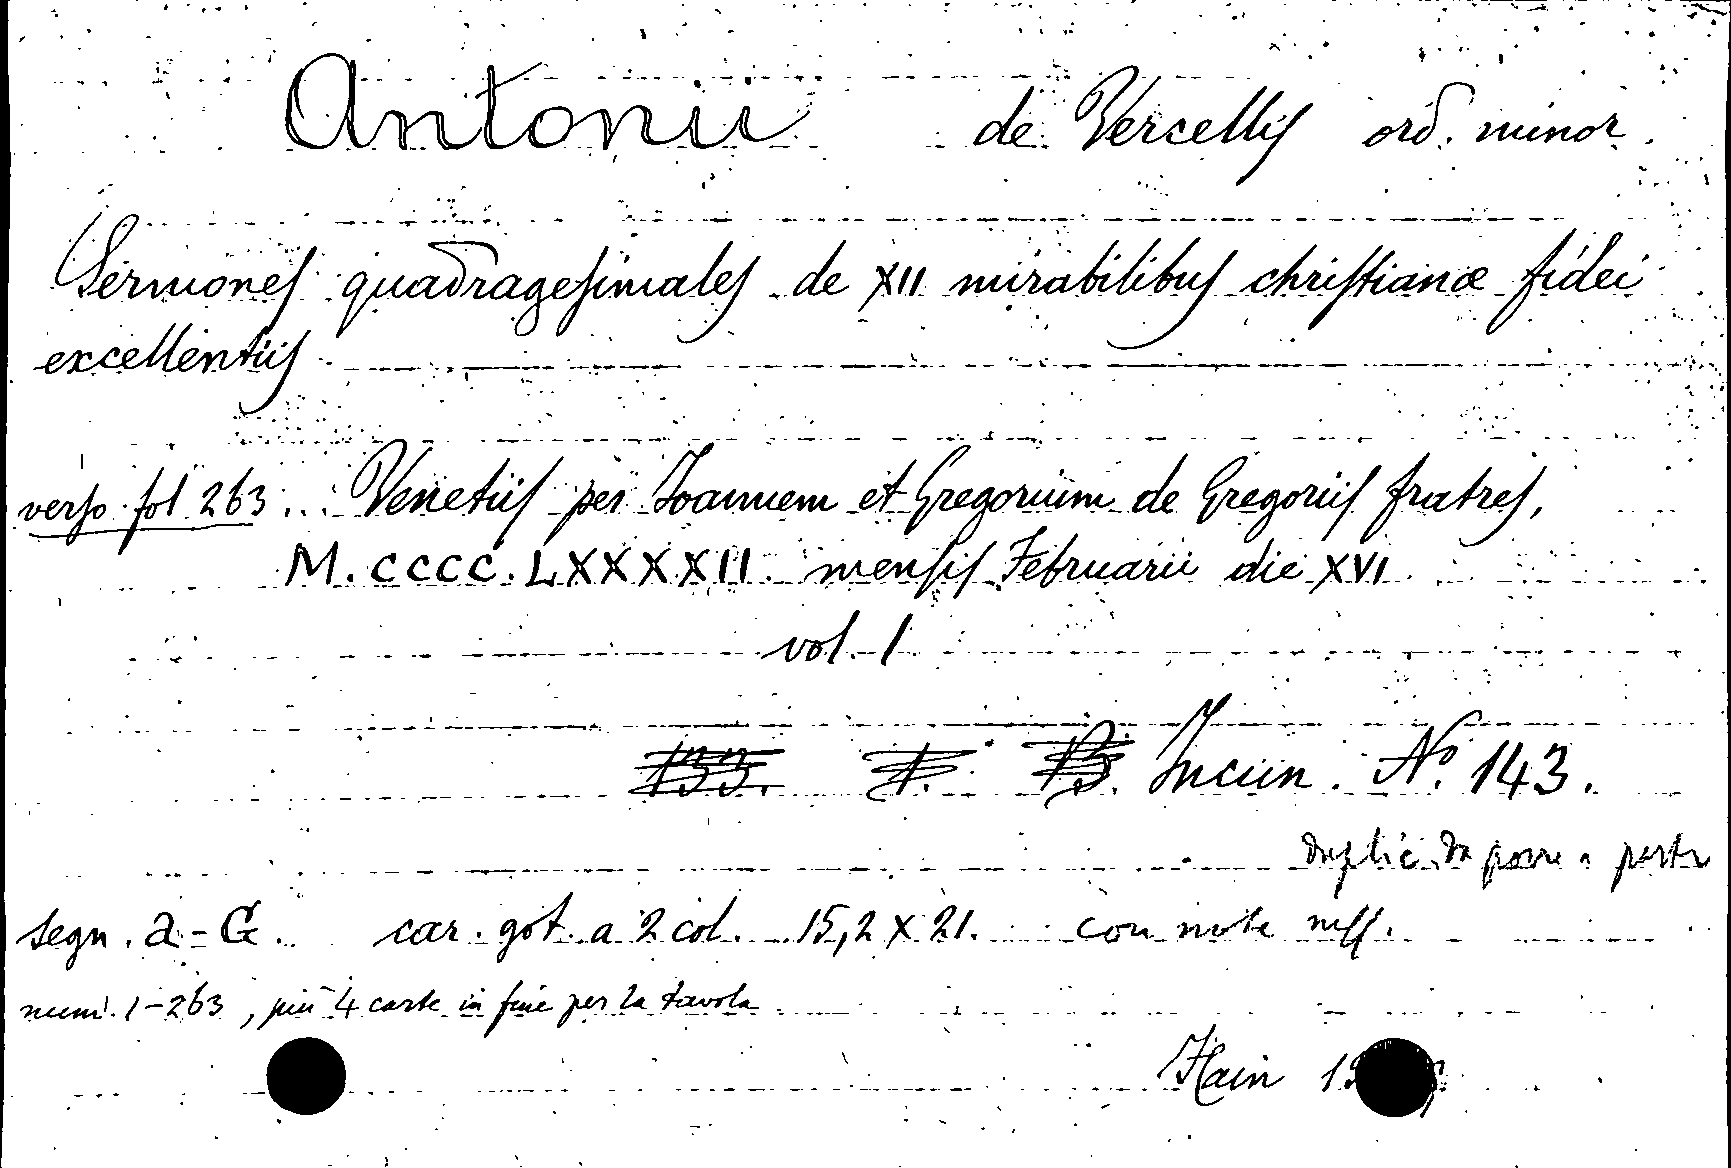 Antonii de Vercellis ord. minor.
Sermones quadragesimales de XII mirabilibus christianæ fidei
excellentiis
verso fol 263... Venetiis per Joannem et Gregorium de Gregoriis fratres,
M.CCCC.LXXXXII mensis Februarii die XVI
vol. 1
Incun. No. 143.
duplic. da porre a parte
segn. a-G. car. got. a 2 col. 15,2 x 21. con note mss.
num. 1-263, più 4 carte in fine per la tavola
Hain